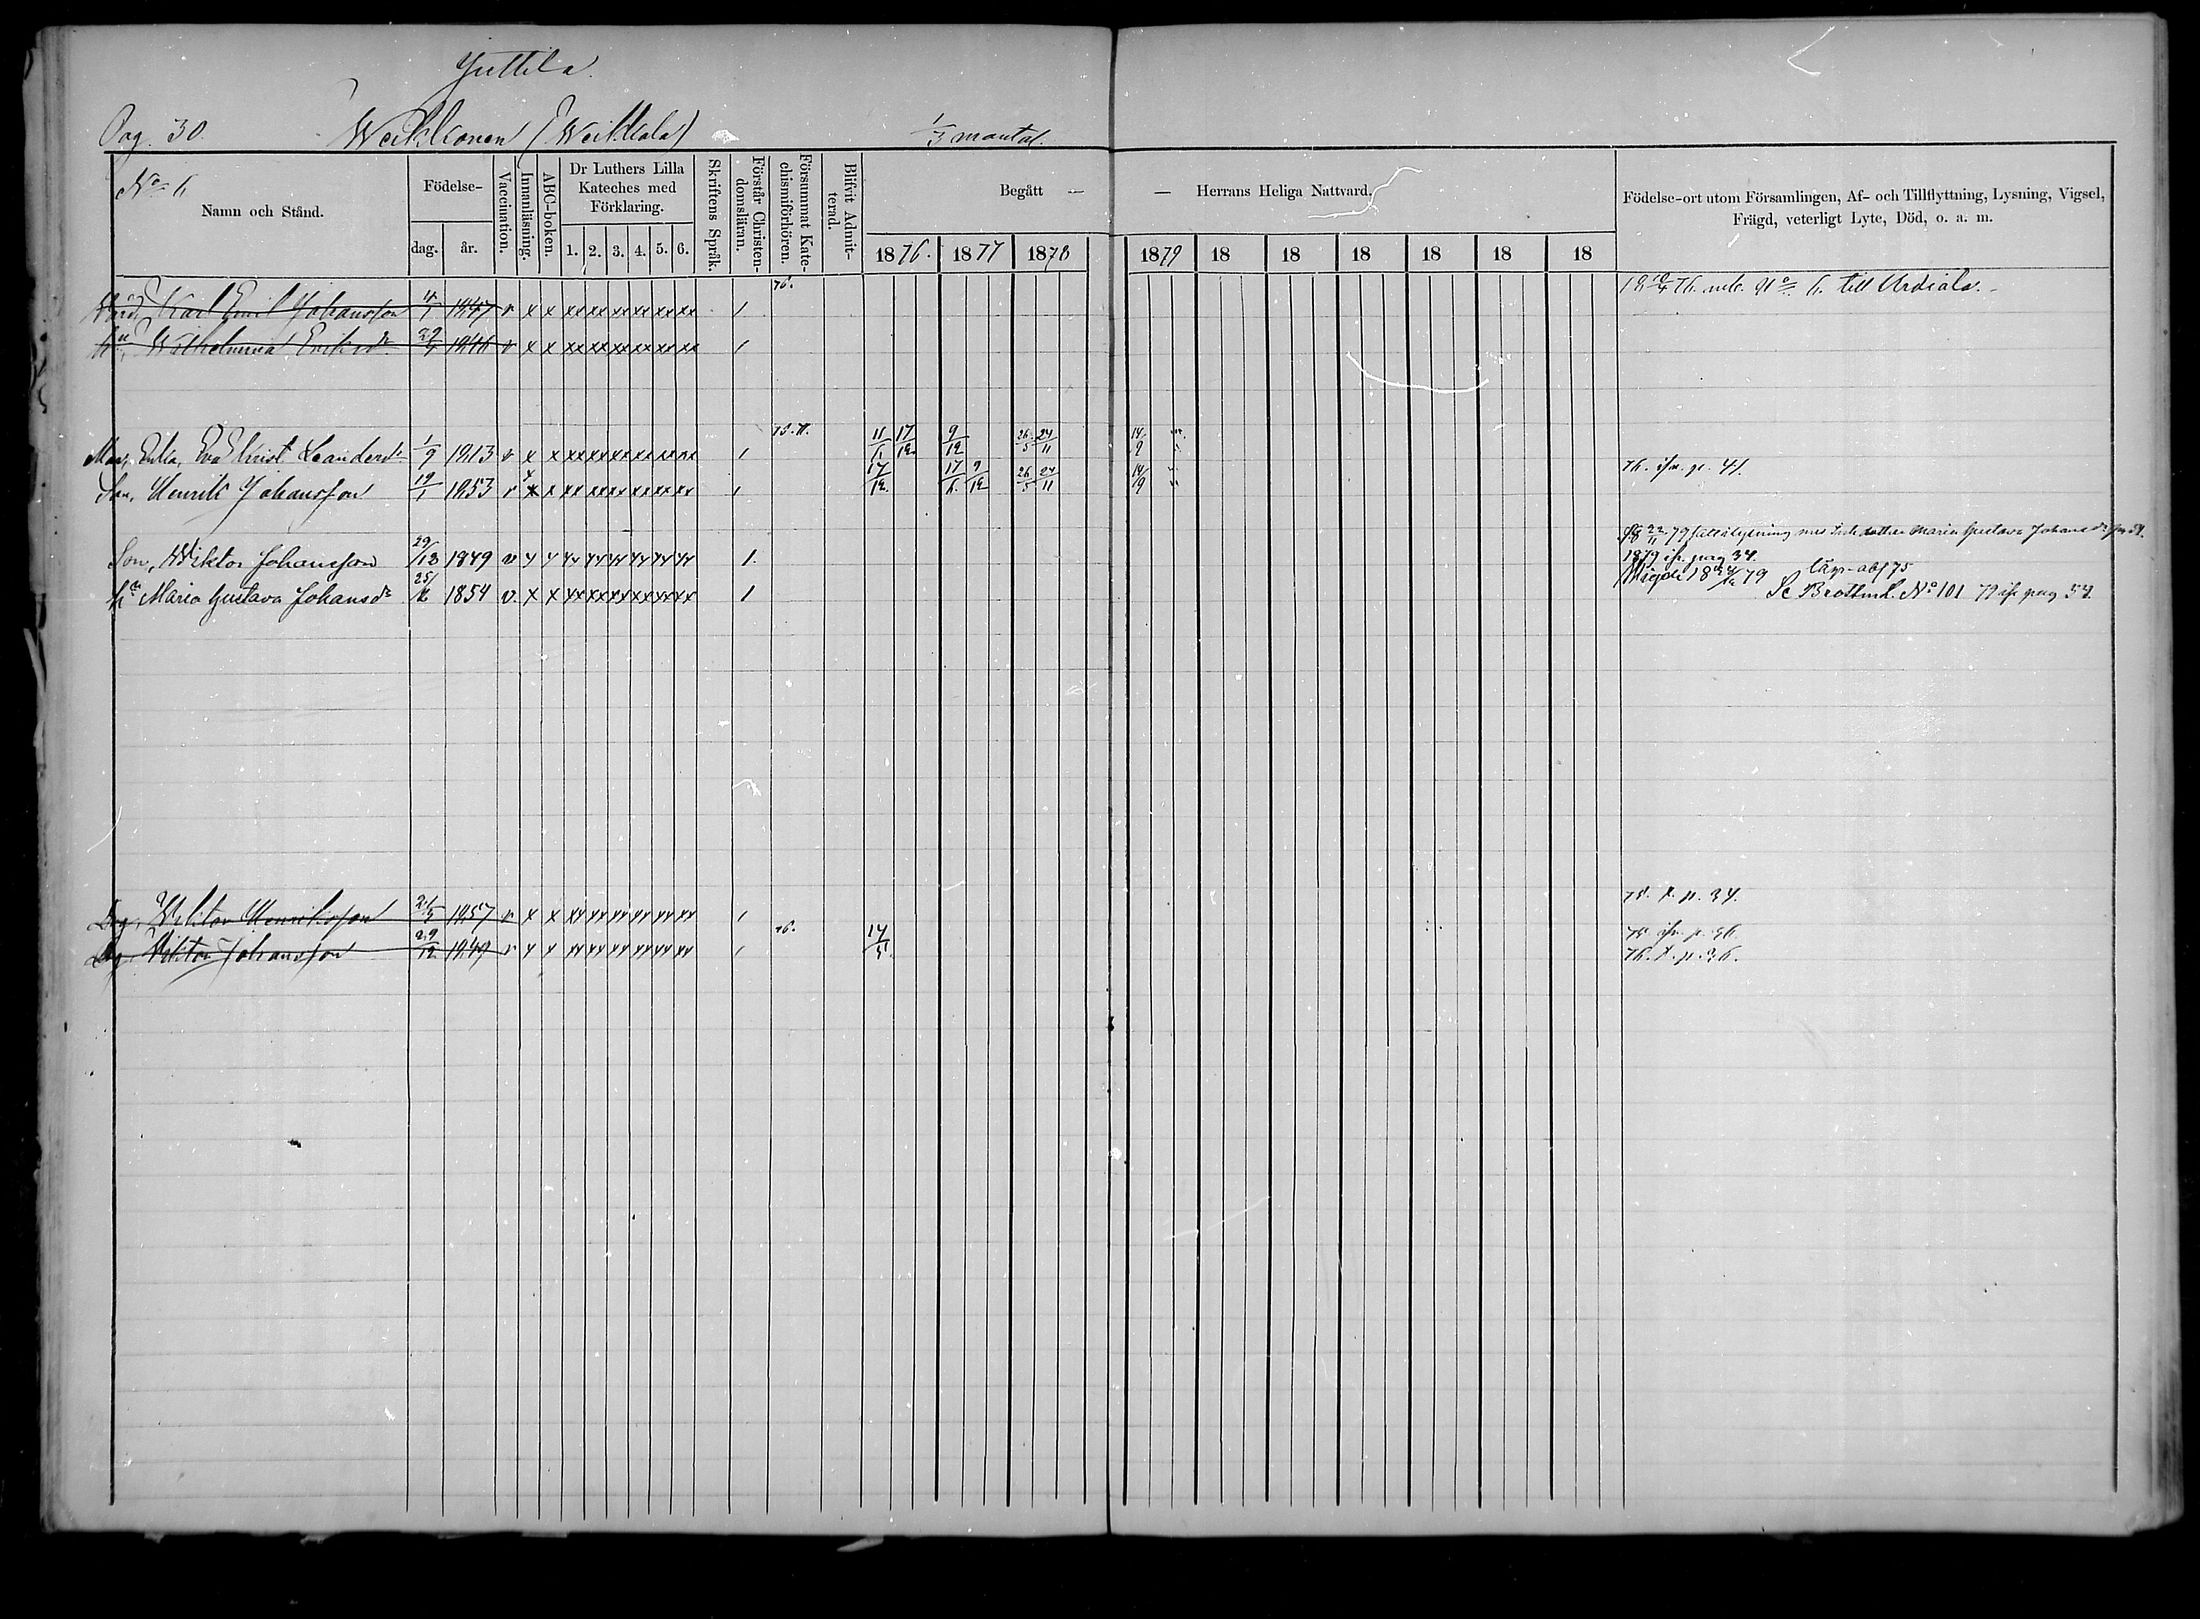 Juttila.
Pag. 30. Weikkonen (Weikkola) 1/3 mantal.
No 6
Namn och Stånd.
Födelse-
dag. år.
Vaccination.
Innanläsning.
ABC-boken.
Dr Luthers Lilla Kateches med Förklaring.
1. 2. 3. 4. 5. 6.
Skriftens Språk.
Förstår Christen-domsläran.
Försummat Kate-chismiförhören.
Blifvit Admit-terad.
Begått — — Herrans Heliga Nattvard.
1876. 1877 1878 1879 18 18 18 18 18 18
Födelse-ort utom Församlingen, Af- och Tillflyttning, Lysning, Vigsel,
Frägd, veterligt Lyte, Död, o. a. m.
Karl Emil Johansson 4/1 1847 v x x xx xx xx xx xx xx 1 76. till Urdiala.
Wilhelmina Eriksdr 29/4 1846 v x x xx xx xx xx xx xx 1
Eva Christ. Leandersdr 1/9 1813 v x x xx xx xx xx xx xx 1 11/1 17/12 9/12 26/5 24/11 14/9
Son, Henrik Johansson 19/1 1853 v x x xx xx xx xx xx xx 1 17/12 17/6 9/12 26/5 24/11 14/9 76. ifr. p. 41.
Maria Gustava Johansdr
Son, Wiktor Johansson 29/12 1849 v 1. 1879 ifr. pag 34.
hu Maria Gustava Johansdr 25/12 1854 v. x x xx xx xx xx xx xx 1 Se Brottmål. No 101 79 ifr pag 54.
Drg, Viktor Henriksson 21/5 1857 v x x xx xx xx xx xx xx 1 78. t. p. 34.
Drg, Viktor Johansson 29/12 1849 v x x xx xx xx xx xx xx 1 76. 17/5 75. ifr. p. 36.
76. t. p. 36.